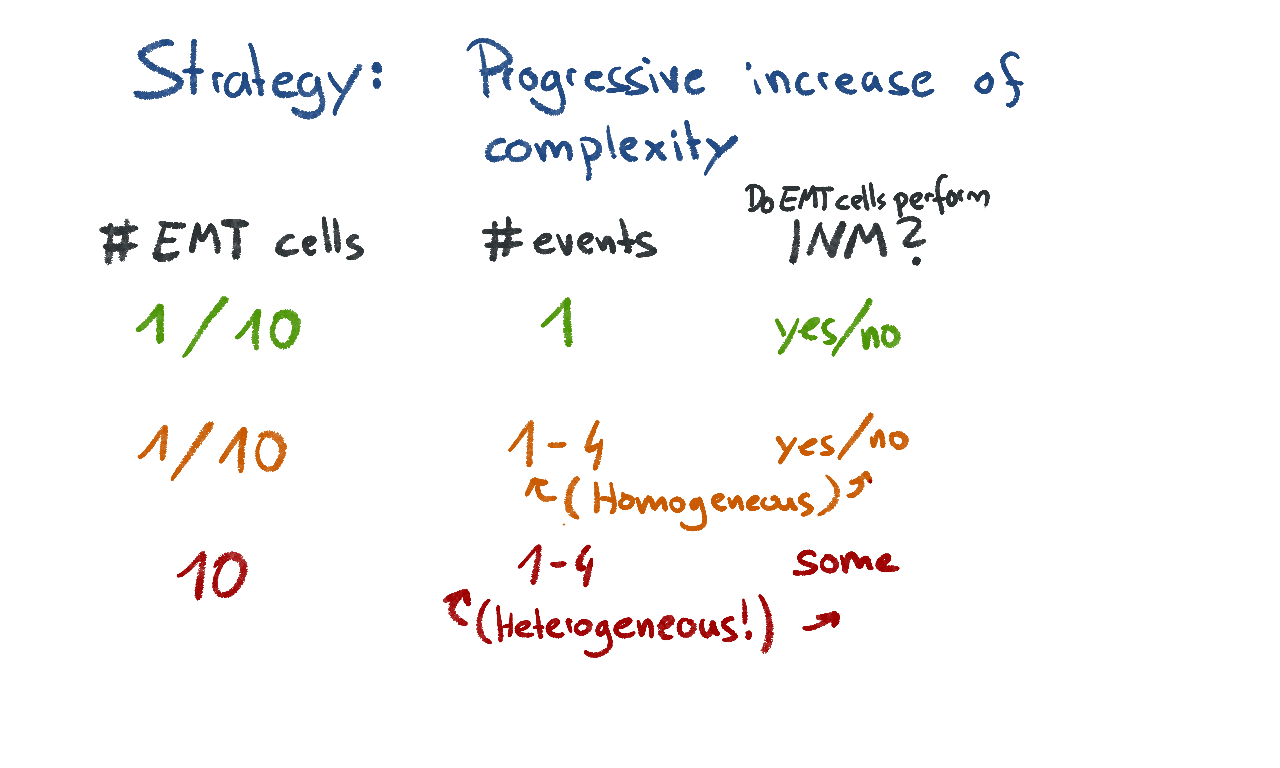 Strategy: Progressive increase of
complexity
Do EMT cells perform
# EMT cells # events INM?
1/10 1 yes/no
1/10 1-4 yes/no
(Homogeneous)
10 1-4 some
(Heterogeneous!)